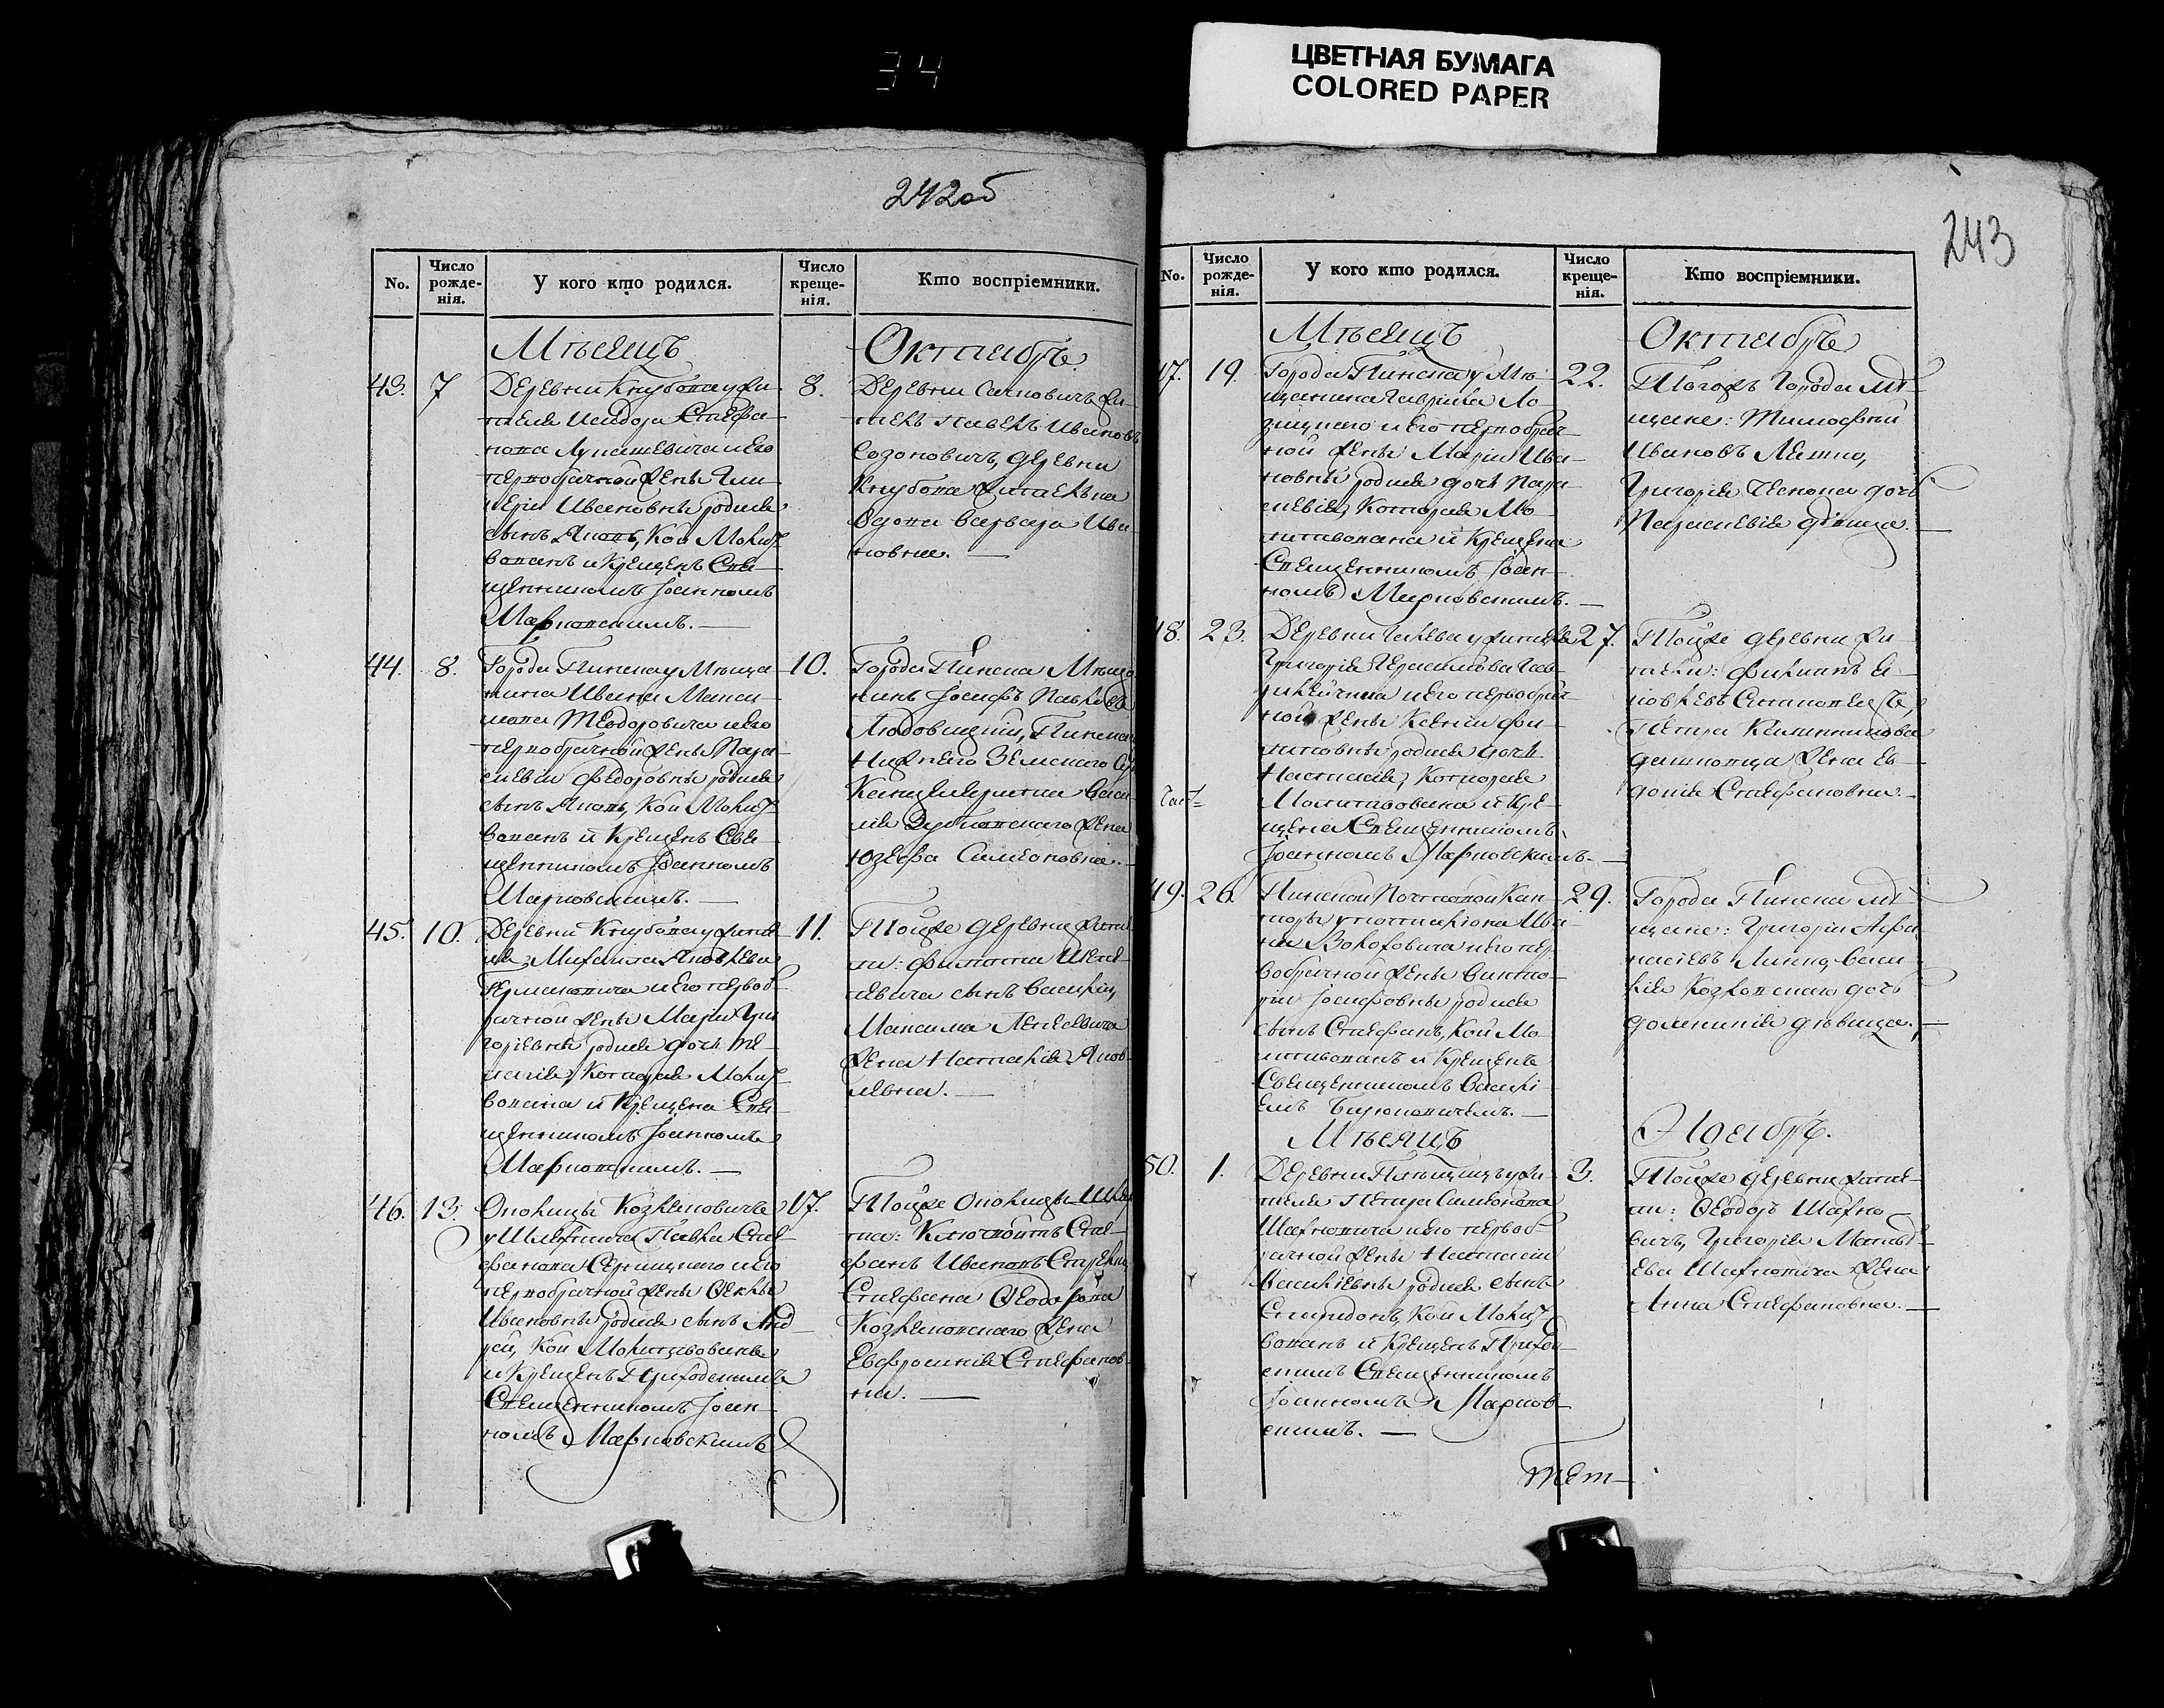 34
ЦВЕТНАЯ БУМАГА
COLORED PAPER
242об
No.
Число рожденія.
У кого кто родился.
Число крещенія.
Кто воспріемники.
Мѣсяцъ
Октябрь.
43.
7
Деревни Кнубова у жи-
теля Исидора Стефа-
нова Лукашевича и его
первобрачной жены Гли-
керіи Ивановны родился
сынъ Яковъ, кой молит-
вованъ и крещенъ Свя-
щенникомъ Іоанномъ
Марковскимъ.
8.
Деревни Сачковичъ жи-
тель Павелъ Ивановъ
Созоновичъ, деревни
Кнубова жительна
вдова Варвара Ива-
новна.
44.
8.
Города Пинска у Мѣща-
нина Ивана Макси-
мова Теодоровича и его
первобрачной жены Пара-
скевіи Федоровны родился
сынъ Яковъ, кой молит-
вованъ и крещенъ Свя-
щенникомъ Іоанномъ
Марковскимъ.
10.
Города Пинска Мѣща-
нинъ Іосифъ Павловъ
Пинска
Нижнего Земского
Канцеляриста Васи-
лія жена
Юзефа Симеоновна.
45.
10.
Деревни Кнубова у жите-
ля Михаила Яковлева
Германовича и его первоб-
рачной жены Маріи Гри-
горіевны родилась дочь Пе-
лагія, которая молит-
вована и крещена Свя-
щенникомъ Іоанномъ
Марковскимъ.
11.
Тойже деревни жите-
ли: Филиппа
сынъ Василій,
Максима
жена Наталія Яков-
левна.
46.
13.
Околицы Козляковичъ
у Шляхтича Павла Сте-
фанова и его
первобрачной жены Феклы
Ивановны родился сынъ Анд-
рей, кой молитвованъ
и крещенъ Приходскимъ
Священникомъ Іоан-
номъ Марковскимъ
17.
Тойже Околицы Шлях-
тна: Сте-
фанъ Ивановъ
Стефана Феодорова
Козляковского жена
Евфросинія Стефанов-
на.
243
No.
Число рожденія.
У кого кто родился.
Число крещенія.
Кто воспріемники.
Мѣсяцъ
Октябрь
47.
19.
Города Пинска у Мѣ-
щанина Гавріила Ло-
зицкого и его первобрач-
ной жены Маріи Ива-
новны родилась дочь Пара-
скевія, которая мо-
литвована и крещена
Священникомъ Іоан-
номъ Марковскимъ.
22.
Тогожъ города мѣ-
щане: Тимофѣй
Ивановъ
Григорія дочь
Параскевія дѣвица.
48.
23.
Деревни у жителя
Григорія Герасимова Гав-
рильчика и его первобрач-
ной жены Ксеніи Фи-
липовны родилась дочь
Настасія, которая
молитвована и кре-
щена Священникомъ
Іоанномъ Марковскимъ.
27.
Тойже деревни жи-
тели: Филипъ
Петра
жена Ев-
докія Стефановна.
49.
26.
Пинской Почтовой Кан-
торы у почталіона Ива-
на Волоховича и его пер-
вобрачной жены Викто-
ріи Іосифовны родился
сынъ Стефанъ, кой мо-
литвованъ и крещенъ
Священникомъ Василі-
емъ Бирюковичемъ.
29.
Города Пинска мѣ-
щане: Григорій Афа-
насіевъ Васи-
лія Козловского дочь
Доминикія дѣвица.
Мѣсяцъ
Ноябрь.
50.
1.
Деревни у жи-
теля Петра Симеонова
Шахновича и его первоб-
рачной жены Настасіи
Василіевны родился сынъ
Спиридонъ, кой молит-
вованъ и крещенъ Приход-
скимъ Священникомъ
Іоанномъ Марков-
скимъ.
3.
Тойже деревни жите-
ли: Феодоръ Шахно-
вичъ, Григорія Матвѣ-
ева Шахновича жена
Анна Стефановна.